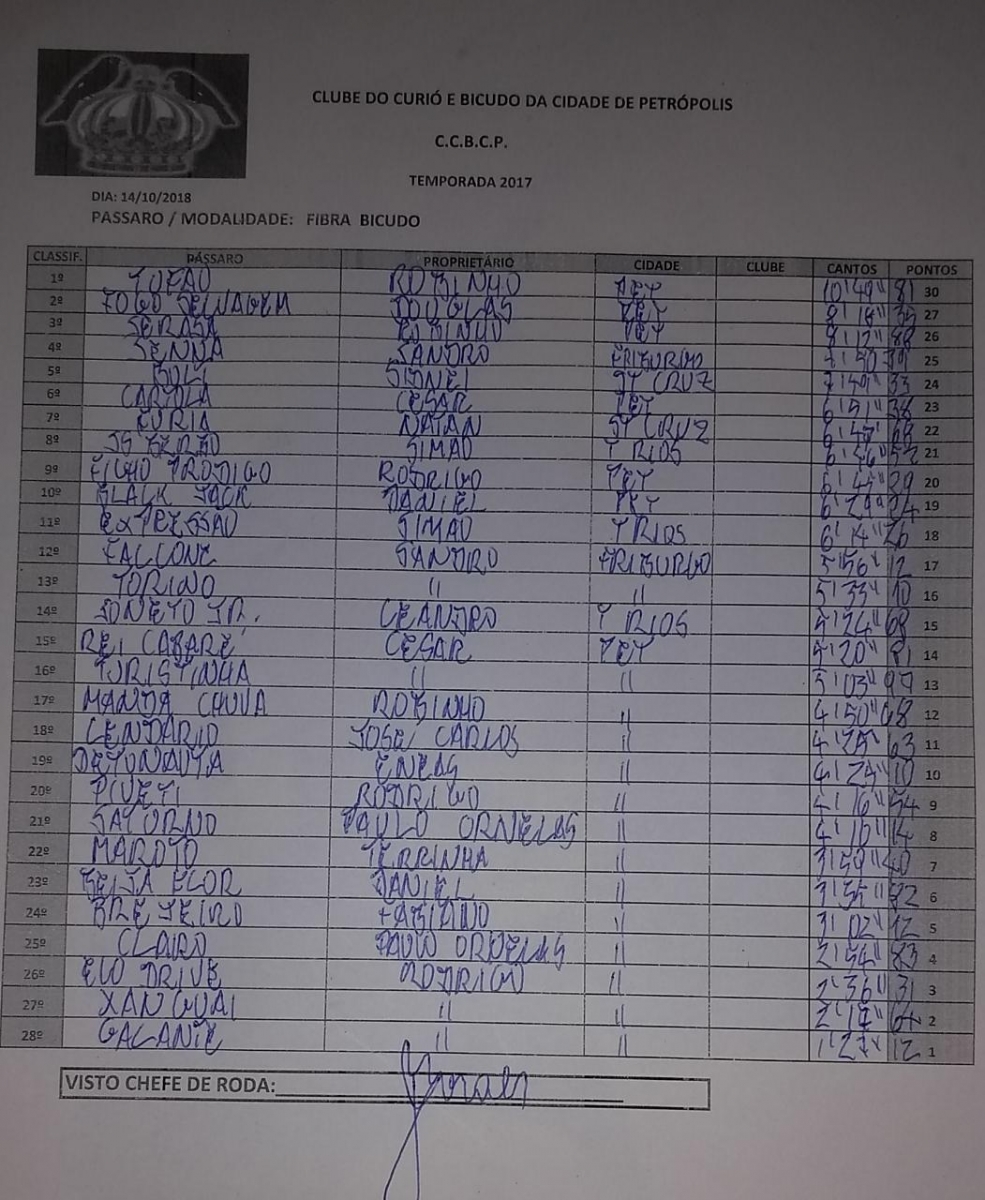 CLUBE DO CURIÓ E BICUDO DA CIDADE DE PETRÓPOLIS
C.C.B.C.P.
TEMPORADA 2017
DIA: 14/10/2018
PASSARO / MODALIDADE: FIBRA BICUDO
CLASSIF. PÁSSARO PROPRIETÁRIO CIDADE CLUBE CANTOS PONTOS
1º TUFAO ROBINHO PET 10'49"81 30
2º FOGO SELVAGEM DOUGLAS PET 27
3º ROBINHO PET 8'12"88 26
4º SENNA SANDRO FRIBURGO 25
5º SIDNEI ST CRUZ 7'49"33 24
6º CARTOLA CESAR PET 6'51"38 23
7º FURIA NATAN ST CRUZ 6'47"68 22
8º SIMAO T RIOS 21
9º FILHO PRODIGO RODRIGO PET 6'45"29 20
10º BLACK JACK DANIEL PET 6'29"24 19
11º EXPRESSAO SIMAO T RIOS 6'14"26 18
12º FALCONE SANDRO FRIBURGO 5'56"12 17
13º TORINO " " 5'33"10 16
14º SONETO JR. LEANDRO T RIOS 5'24"68 15
15º REI CABARÉ CESAR PET 5'20"81 14
16º TURISTINHA " " 5'03"97 13
17º MANDA CHUVA ROBINHO " 4'50"68 12
18º LENDARIO JOSÉ CARLOS " 63 11
19º DETONAUTA ENEAS " 4'24"10 10
20º PIVETI RODRIGO " 4'16"54 9
21º SATURNO PAULO ORNELAS " 4'10"14 8
22º MAROTO TERRINHA " 3'59"40 7
23º BEIJA FLOR DANIEL " 6
24º BREJEIRO FABIANO " 3'02"12 5
25º CLAIRO PAULO ORNELAS " 2'54"83 4
26º RODRIGO " 2'36"31 3
27º XANGUAI " " 2'17"64 2
28º GALANTE " " 1'27"12 1
VISTO CHEFE DE RODA: